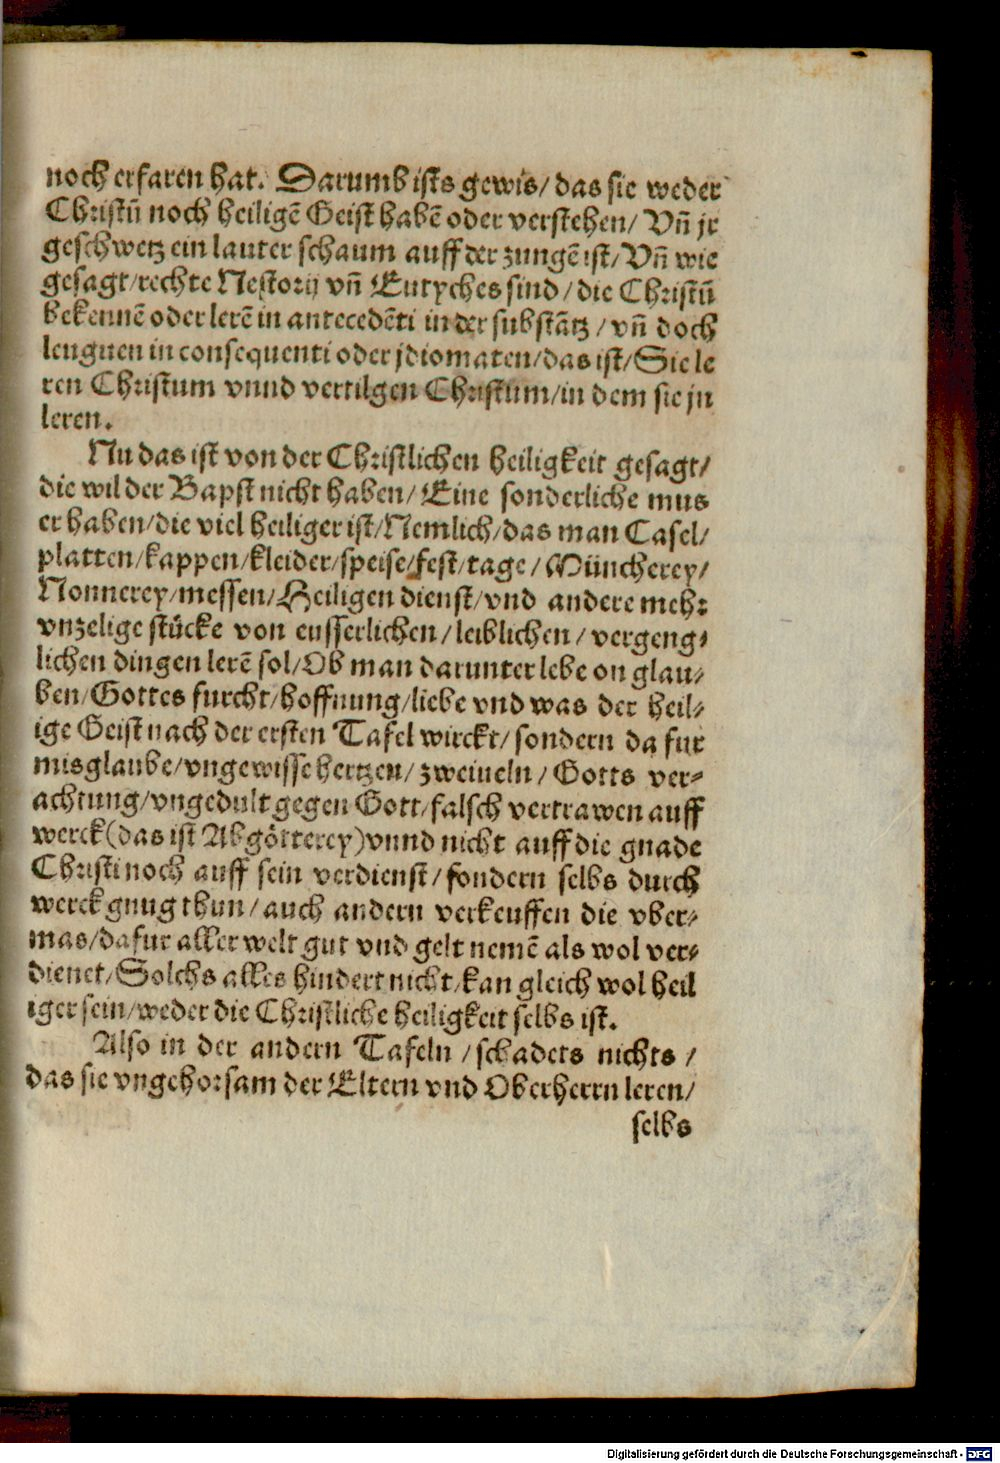 noch erfaren hat. Darumb ists gewis/ das sie weder
Christū noch heiligē Geist habē oder verstehen/ Vn̄ jr
geschwetz ein lauter schaum auff der zungē ist/ Vn̄ wie
gesagt/rechte Nestorij vn̄ Eutyches sind/ die Christū
bekennē oder lerē in antecedēti in der substātz/ vn̄ doch
leugnen in consequenti oder jdiomaten/das ist/ Sie le
ren Christum vnnd vertilgen Christum/in dem sie jn
leren.
Nu das ist von der Christlichen heiligkeit gesagt/
die wil der Bapst nicht haben/ Eine sonderliche mus
er haben/die viel heiliger ist/Nemlich/das man Casel/
platten/kappen/kleider/speise/fest/tage/ Müncherey/
Nonnerey/messen/Heiligen dienst/vnd andere mehr
vnzelige stücke von eusserlichen/ leiblichen/ vergeng-
lichen dingen lerē sol/Ob man darunter lebe on glau-
ben/Gottes furcht/hoffnung/liebe vnd was der heil-
ige Geist nach der ersten Tafel wirckt/ sondern da fur
misglaube/vngewisse hertzen/ zweiueln/ Gotts ver-
achtung/vngedult gegen Gott/falsch vertrawen auff
werck(das ist Abgötterey)vnnd nicht auff die gnade
Christi noch auff sein verdienst/ sondern selbs durch
werck gnug thun/ auch andern verkeuffen die vber-
mas/dafur aller welt gut vnd gelt nemē als wol ver-
dienet/Solchs alles hindert nicht/kan gleich wol heil
iger sein/weder die Christliche heiligkeit selbs ist.
Also in der andern Tafeln /schadets nichts /
das sie vngehorsam der Eltern vnd Oberherrn leren/
selbs
Digitalisierung gefördert durch die Deutsche Forschungsgemeinschaft - DFG